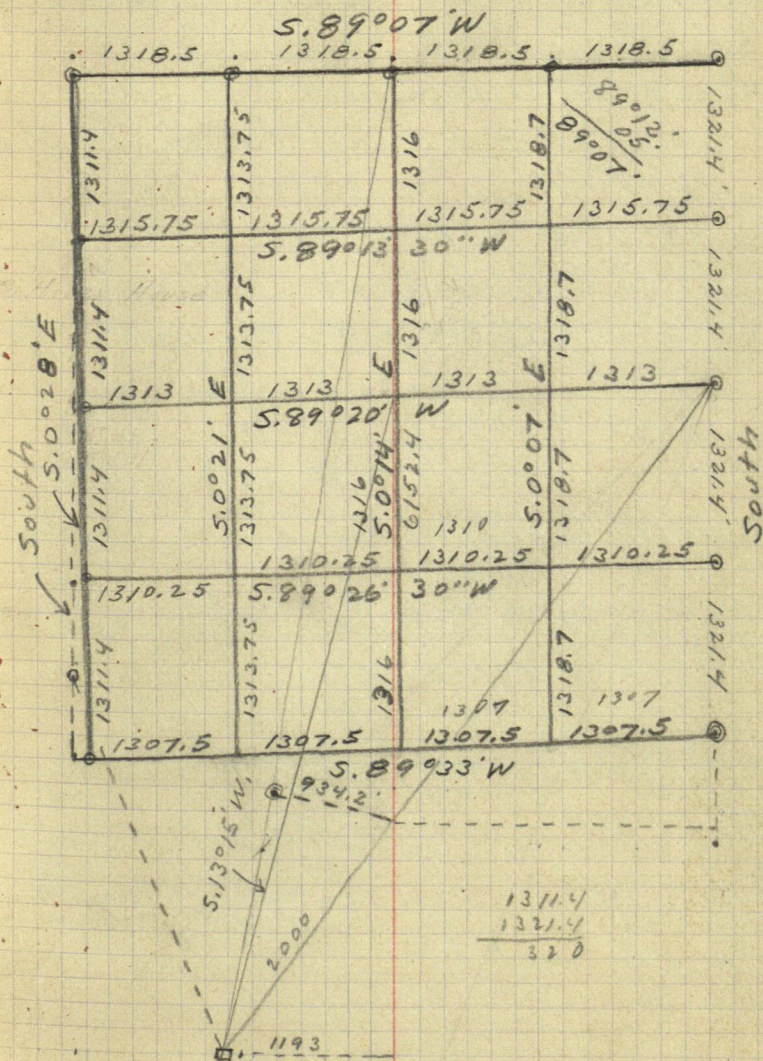 S.89°07'W
1318.5 1318.5 1318.5 1318.5
1311.4 1313.75 1316 1318.7 1321.4'
89°07'
1315.75 1315.75 1315.75 1315.75
S.89°13' 30"W
House
1311.4 1313.75 1316 1318.7 1321.4'
South
S.0°28'E
1313 1313 1313 1313
S.89°20' W
S.0°21' E
S.0°14' E
S.0°07' E
1311.4 1313.75 1316 6152.4 1318.7 1321.4'
South
1310
1310.25 1310.25 1310.25
1310.25 S.89°26' 30"W
1311.4 1313.75 1316 1318.7 1321.4'
1307 1307
1307.5 1307.5 1307.5 1307.5
S.89°33'W
934.2'
S.13°15'W.
2000
1311.4
1321.4
320
1193